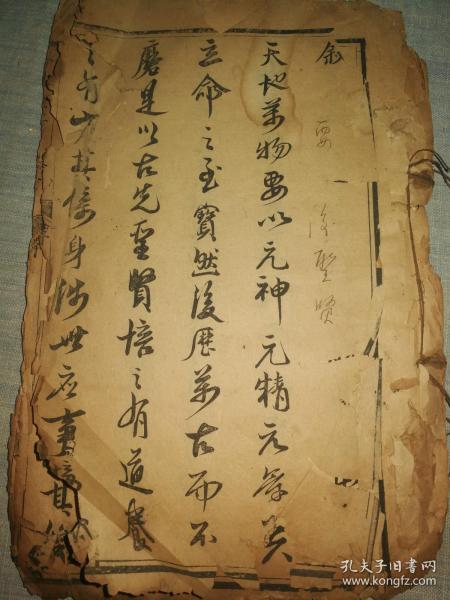 叙
要 聖賢
天地萬物要以元神元精元氣為
立命之至寶然後歷萬古而不
磨是以古先聖賢培之有道養
之有方其修身涉世應事
孔夫子旧书网
www.kongfz.com